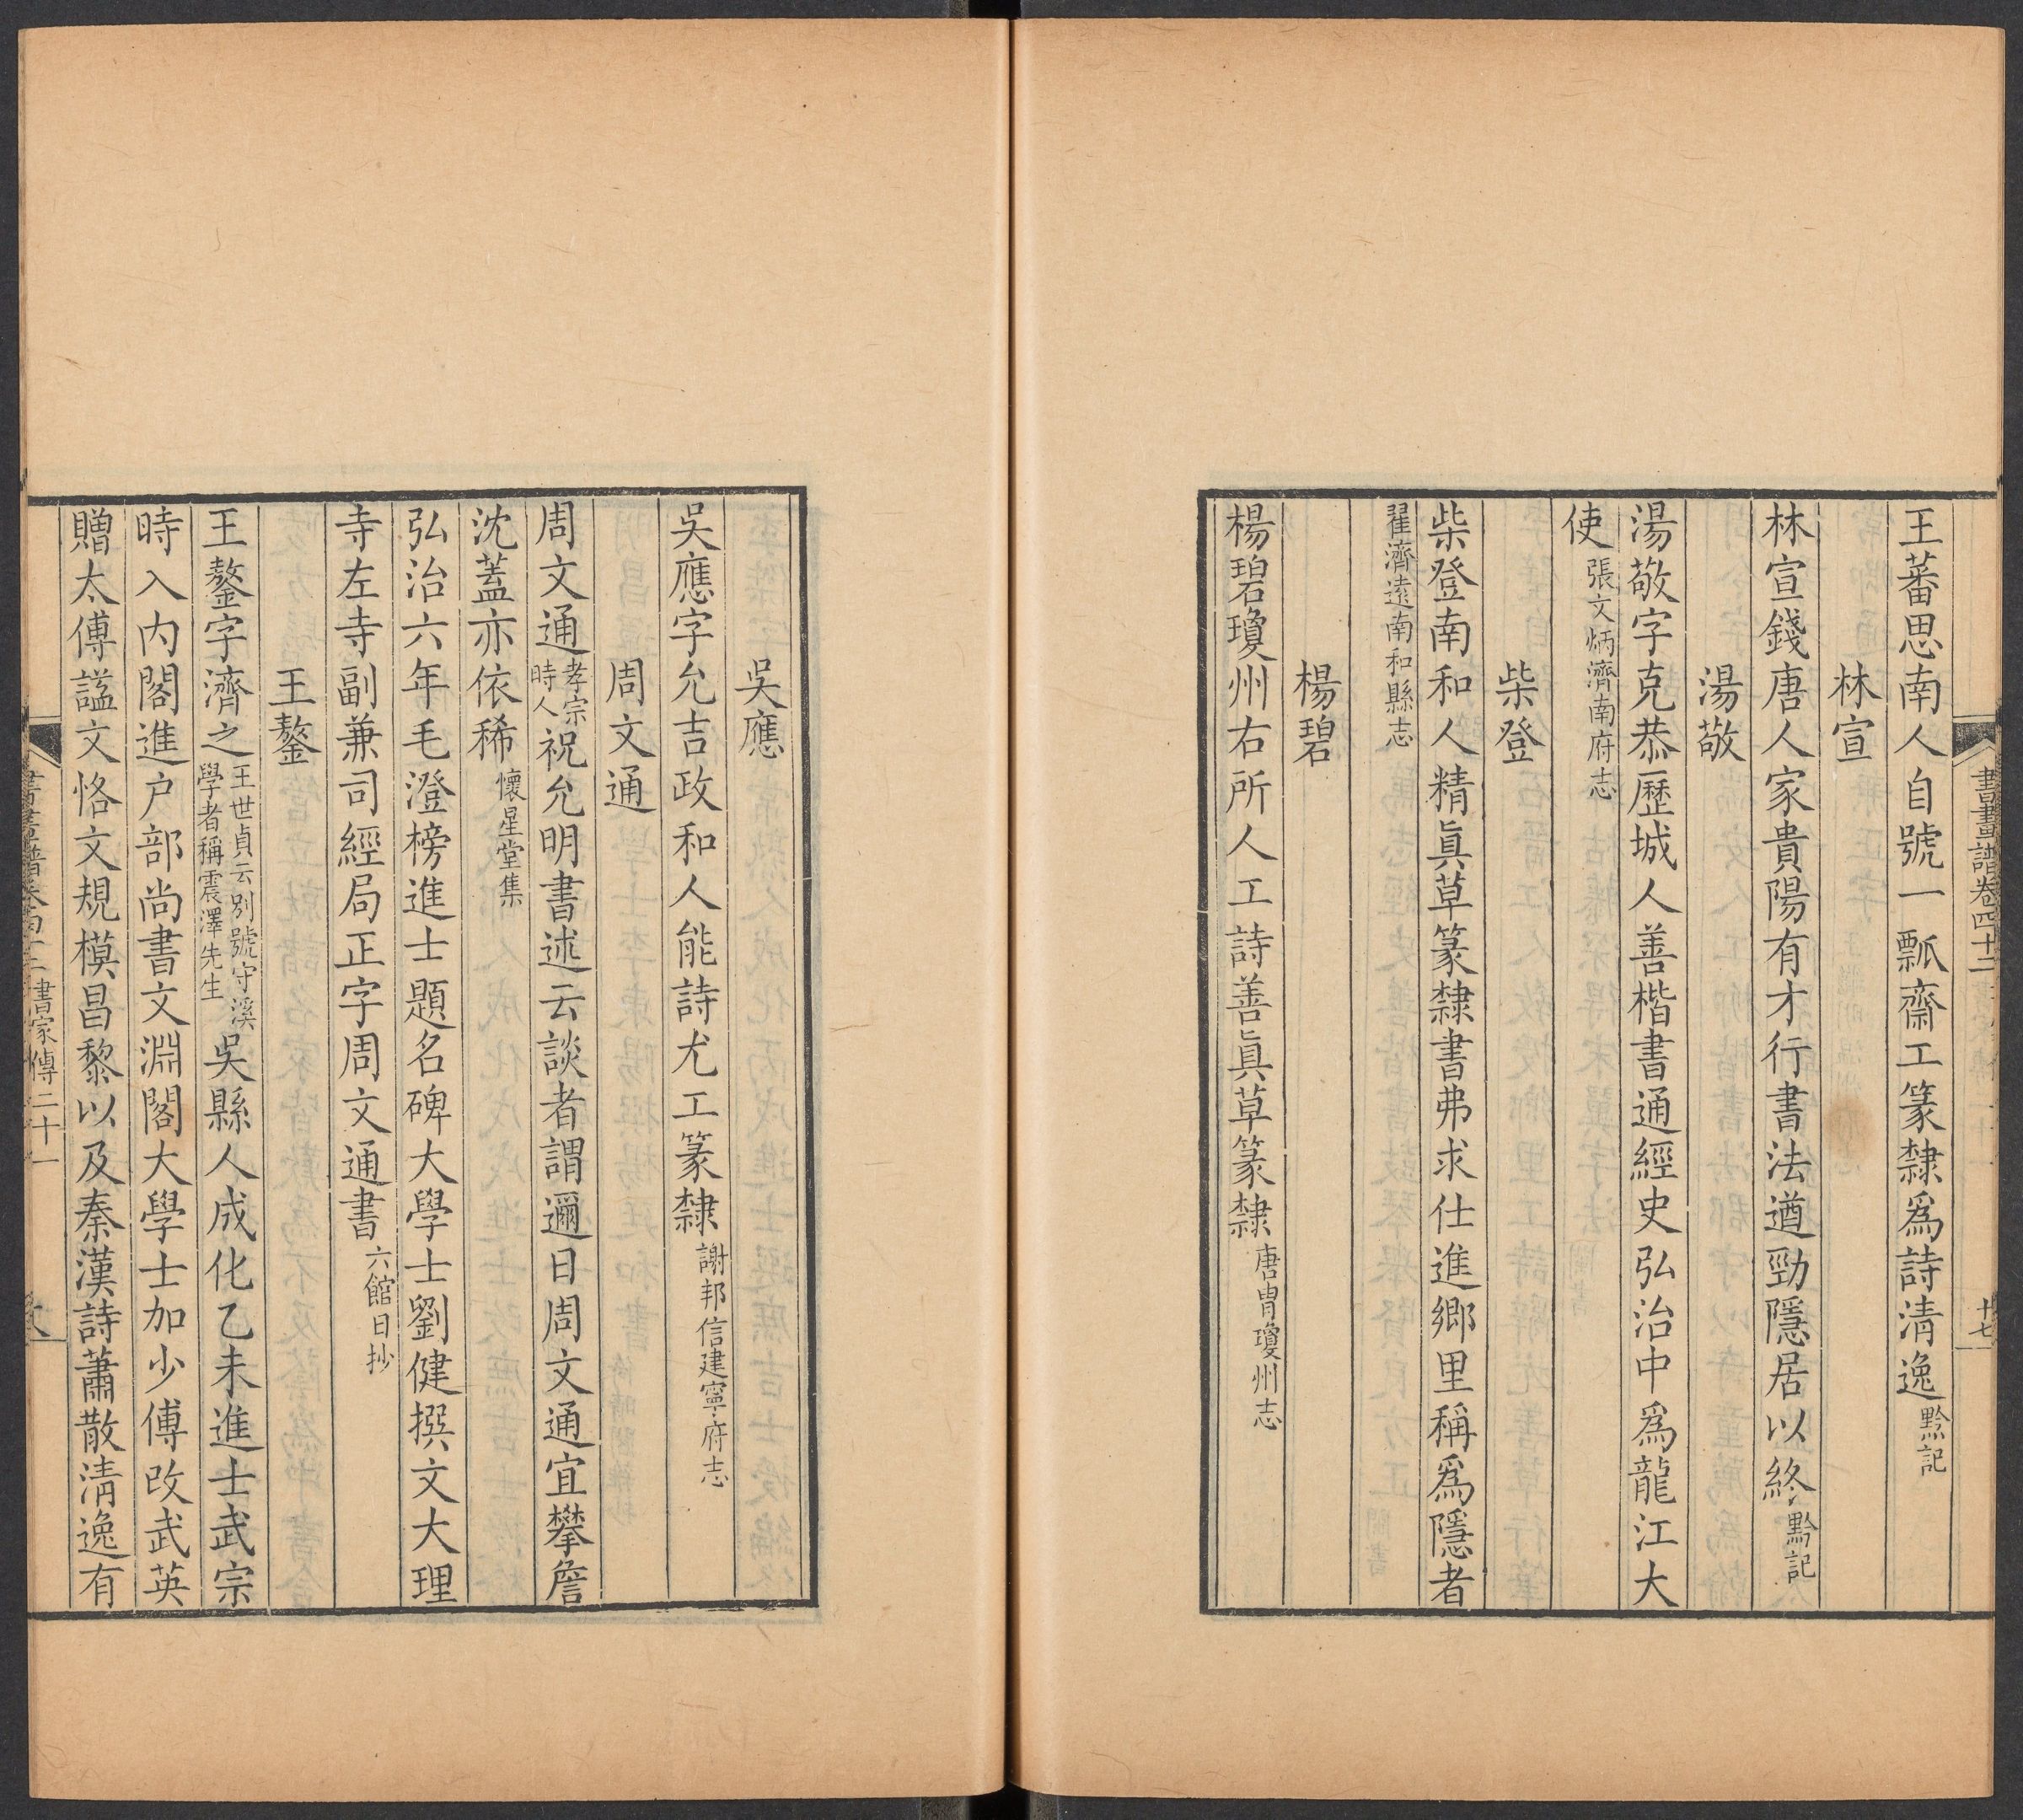 書畫譜卷四十二
十七
王蕃思南人自號一瓢齋工篆隸爲詩清逸黔記
林宣
林宣錢唐人家貴陽有才行書法遒勁隱居以終黔記
湯敬
湯敬字克恭歷城人善楷書通經史弘治中爲龍江大
使張文炳濟南府志
柴登
柴登南和人精眞草篆隸書弗求仕進鄉里稱爲隱者
翟濟遠南和縣志
楊碧
楊碧瓊州右所人工詩善眞草篆隸唐胄瓊州志
吳應
吳應字允吉政和人能詩尤工篆隸謝邦信建寧府志
周文通
周文通孝宗時人祝允明書述云談者謂邇日周文通宜攀詹
沈蓋亦依稀懷星堂集
弘治六年毛澄榜進士題名碑大學士劉健撰文大理
寺左寺副兼司經局正字周文通書六館日抄
王鏊
王鏊字濟之王世貞云別號守溪學者稱震澤先生吳縣人成化乙未進士武宗
時入内閣進户部尚書文淵閣大學士加少傅改武英
贈太傅謚文恪文規模昌黎以及秦漢詩蕭散清逸有
書家傳二十一